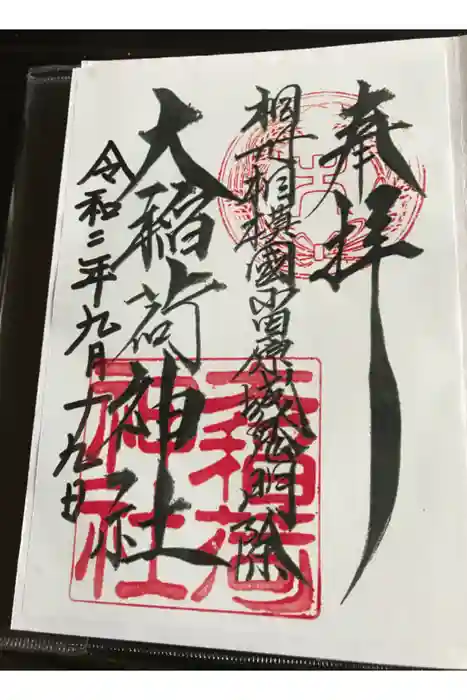 奉拝
相模國小田原城鬼門除
大稲荷神社
令和二年九月十九日
大稲荷
神社